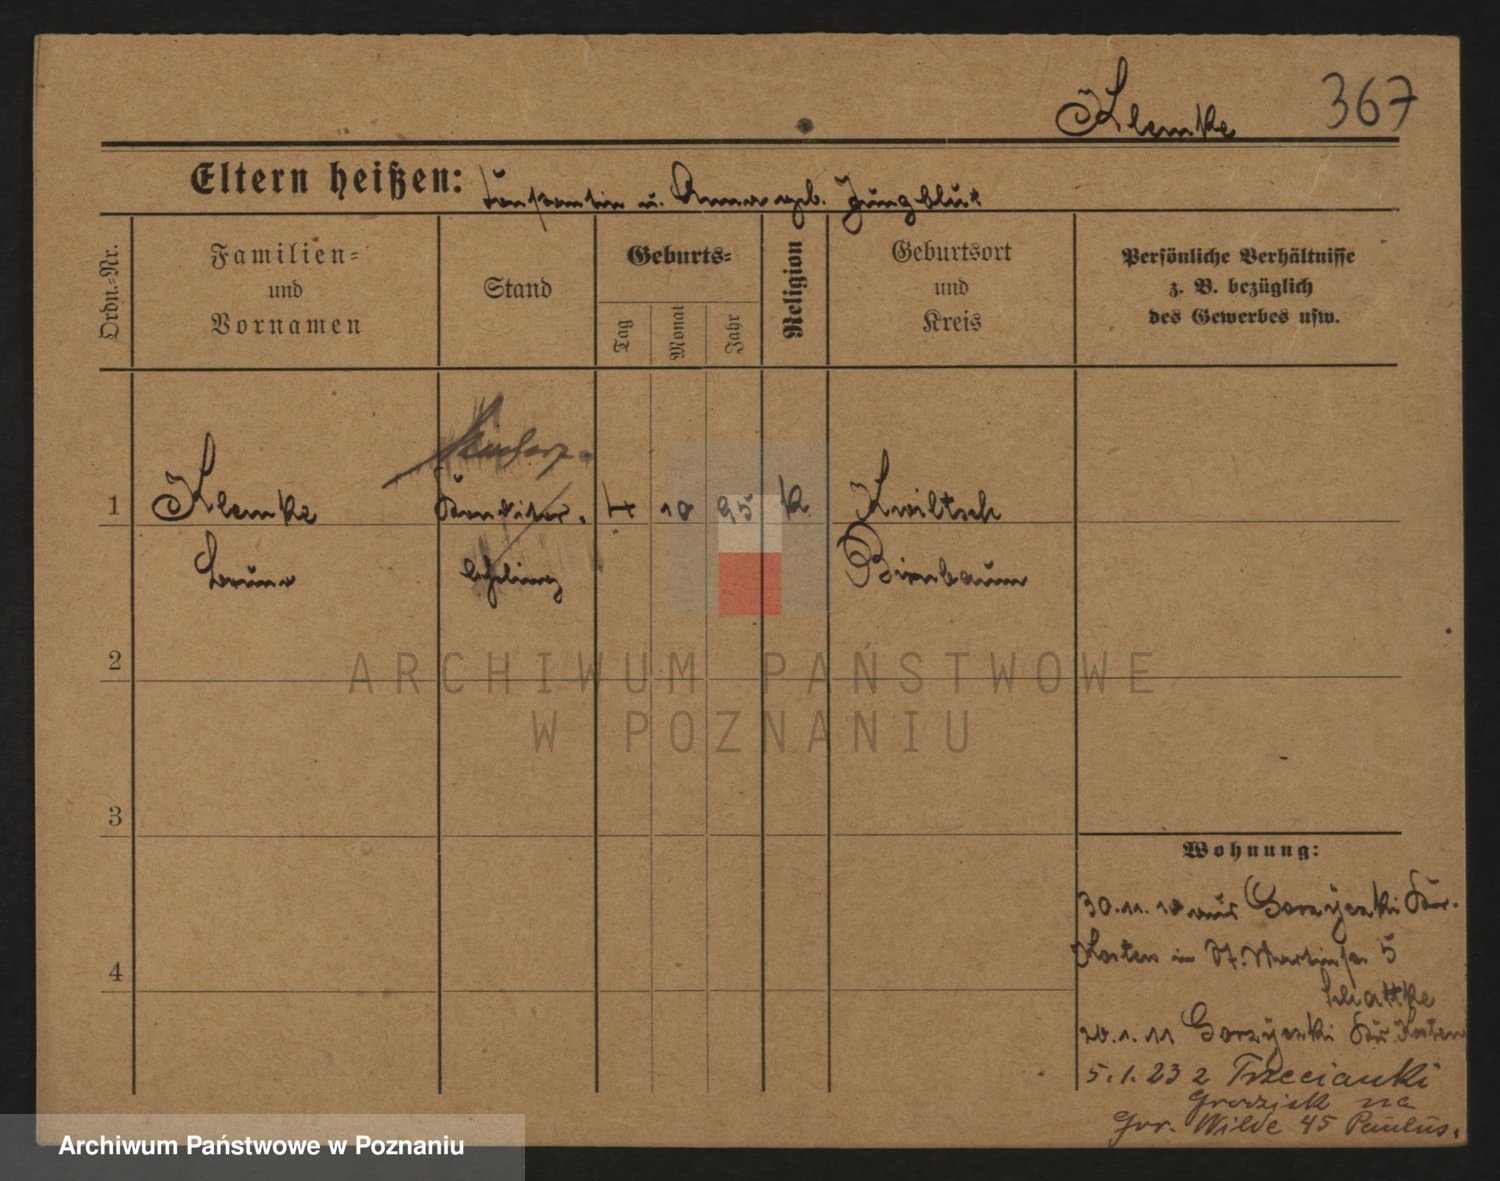 Klemke 367
Eltern heißen: Constantin u. Anna geb. Jungblut
Ordn.-Nr.
Familien-
und
Vornamen
Stand
Geburts-
Tag
Monat
Jahr
Religion
Geburtsort
und
Kreis
Persönliche Verhältnisse
z. B. bezüglich
des Gewerbes usw.
1 Klemke Konditor. 4 10 95 K. Kwiltsch
Bruno Lehrling Birnbaum
2
ARCHIWUM PAŃSTWOWE
W POZNANIU
3
4
Wohnung:
30.11.10 aus Gorzyczki Kr.
Kosten in St. Martinstr 5
Schattke
20.1.11 Gorzyczki Kr. Kosten
5.1.23 z Trzcianki
Grodzisk na
Gór. Wilde 45 Paulus.
Archiwum Państwowe w Poznaniu